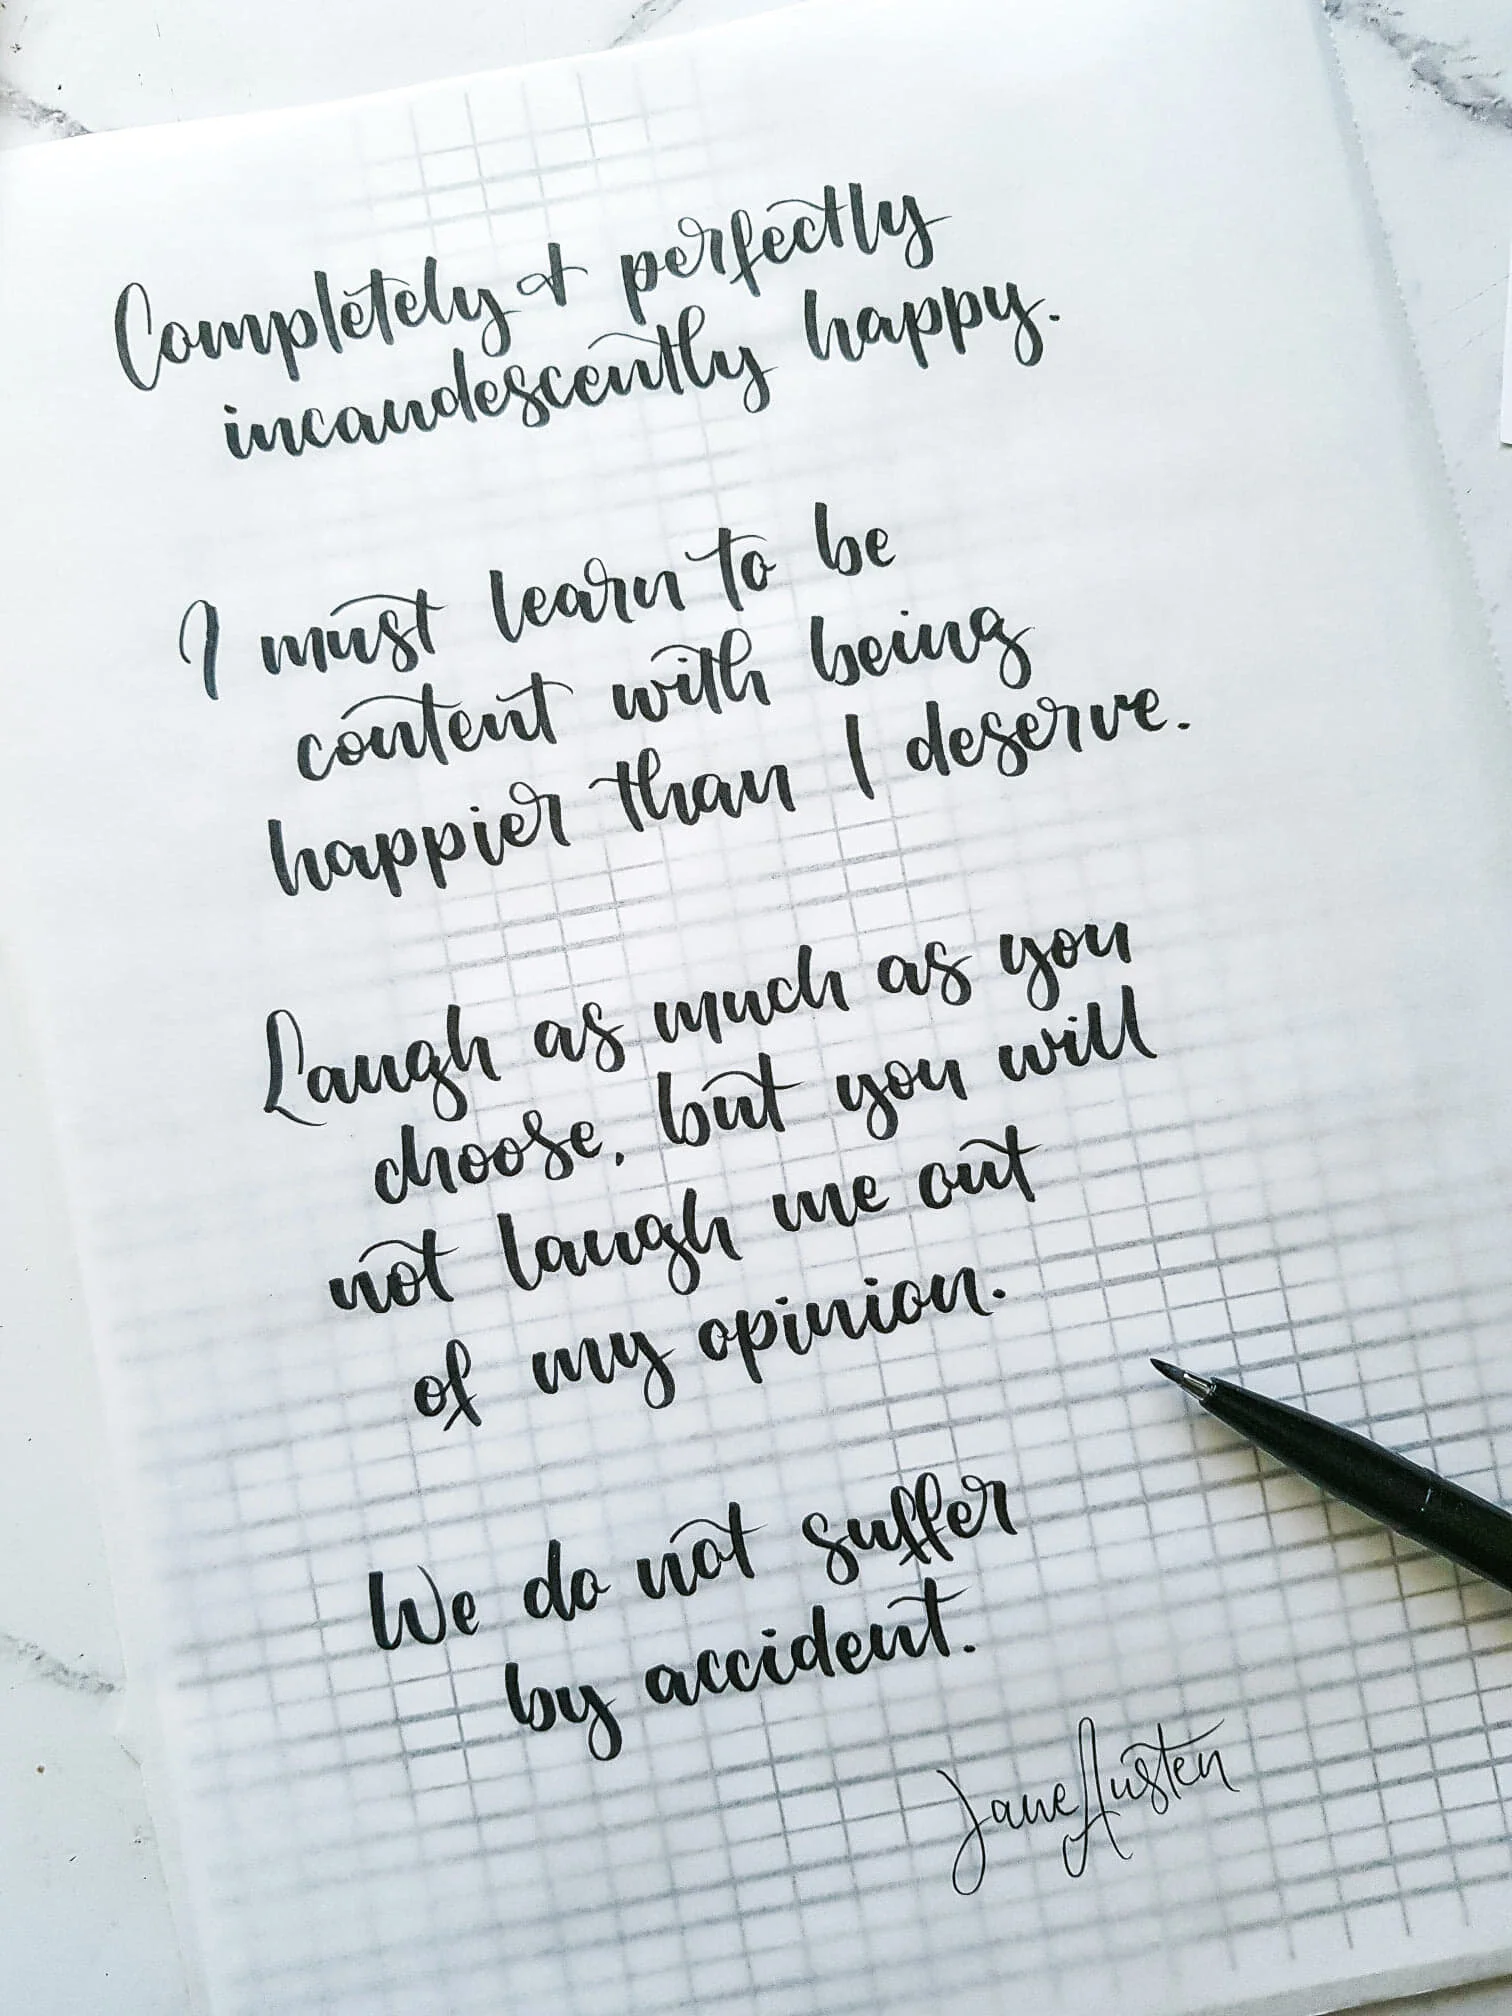 Completely & perfectly
incandescently happy.
I must learn to be
content with being
happier than I deserve.
Laugh as much as you
choose, but you will
not laugh me out
of my opinion.
We do not suffer
by accident.
Jane Austen